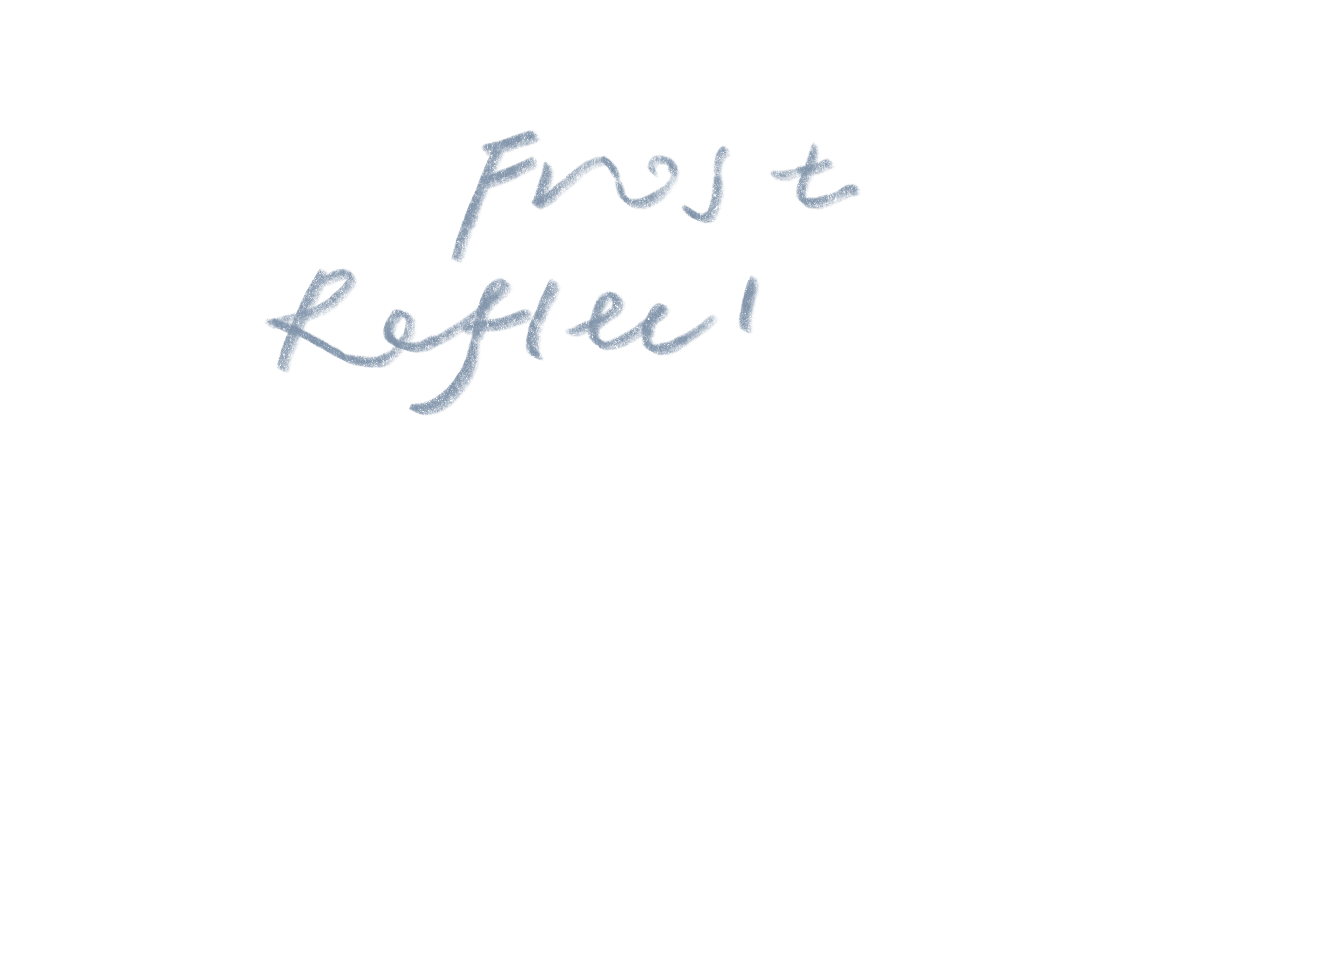 Frost
Reflect